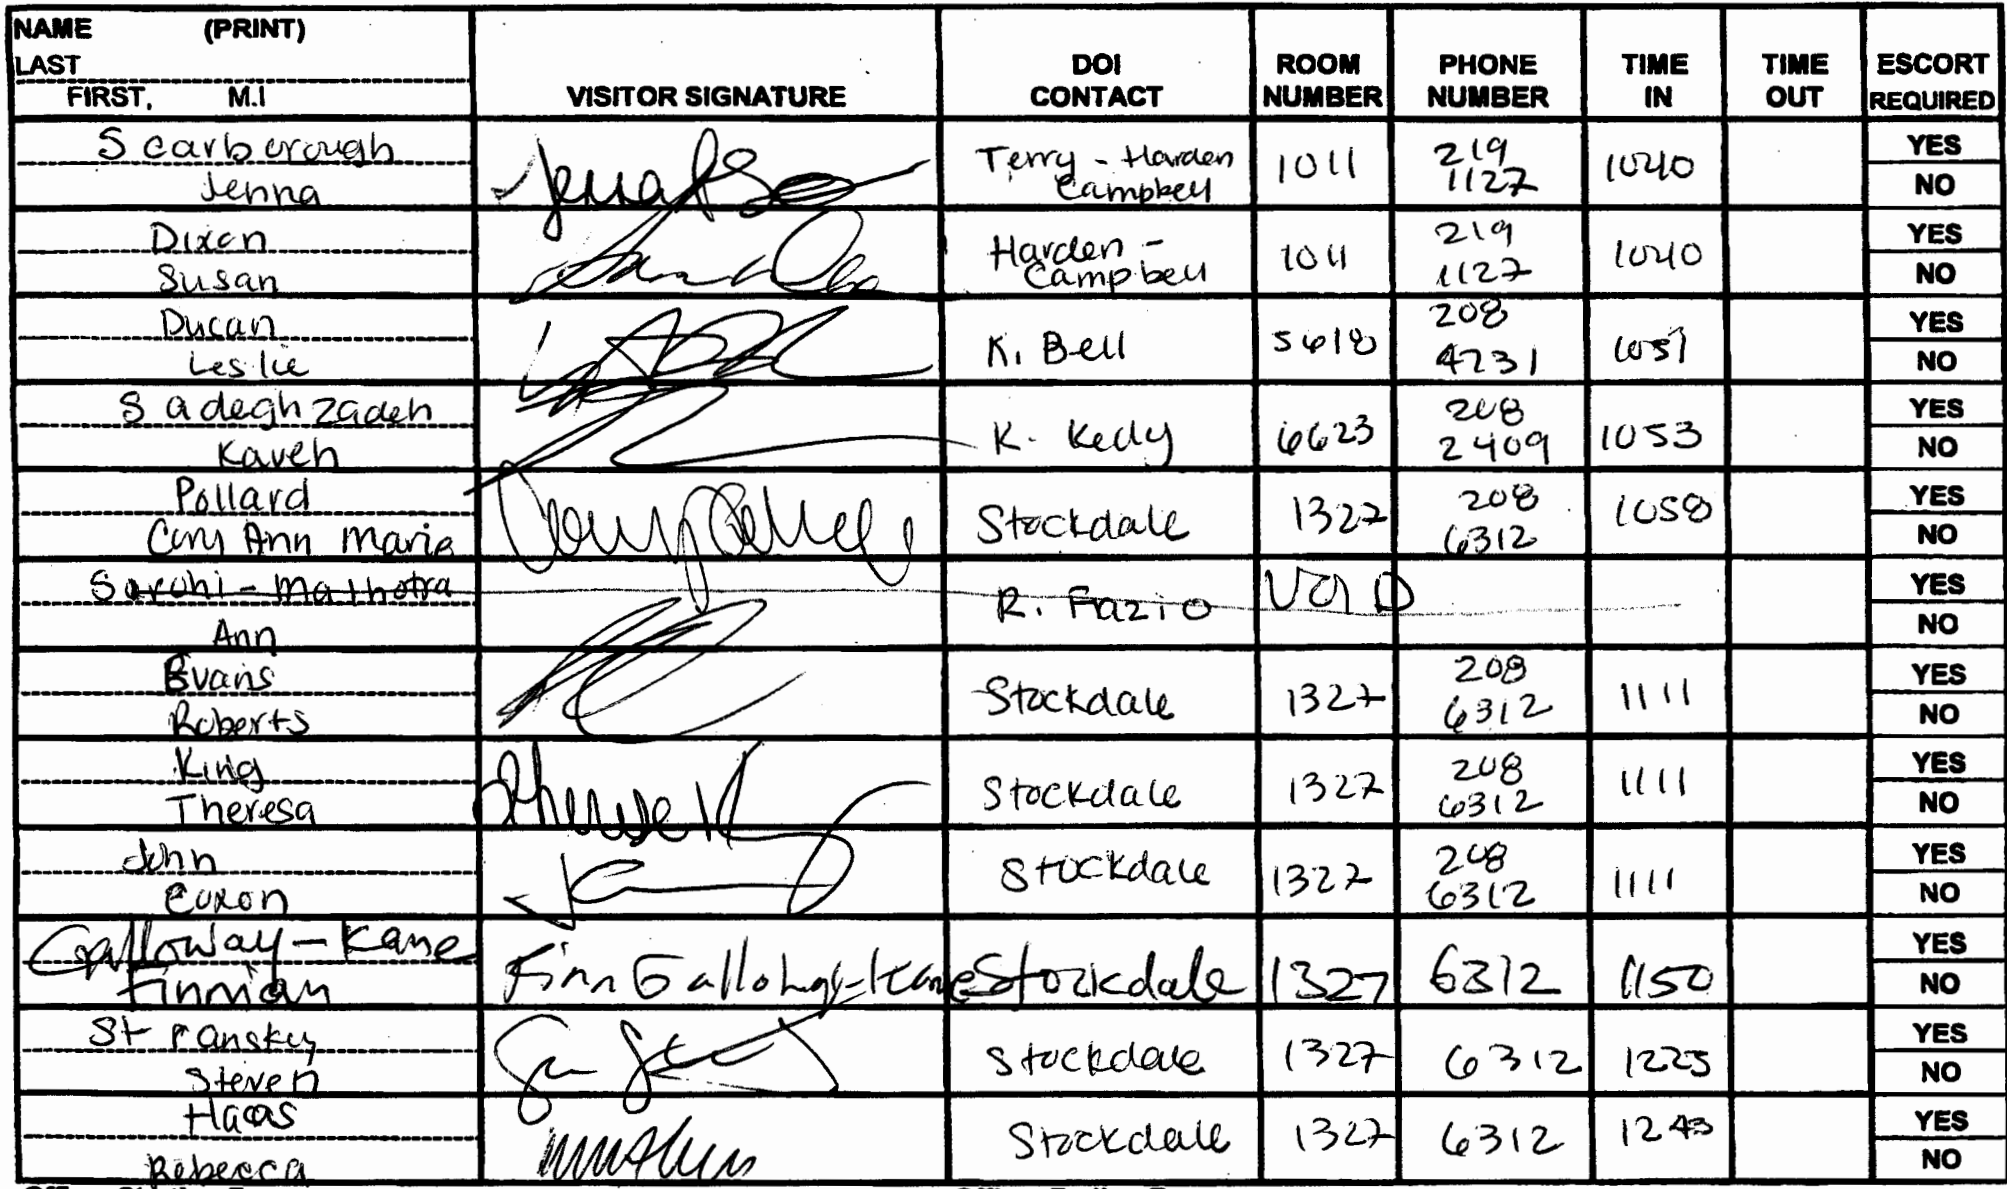 NAME (PRINT)
LAST
FIRST, M.I
VISITOR SIGNATURE
DOI CONTACT
ROOM NUMBER
PHONE NUMBER
TIME IN
TIME OUT
ESCORT REQUIRED
Scarborough
Jenna
Terry - Harden Campbell
1011
219 1127
1040
YES
NO
Dixon
Susan
Harden - Campbell
1011
219 1127
1040
YES
NO
Ducan
Leslie
K. Bell
5618
208 4231
1051
YES
NO
Sadeghzadeh
Kaveh
K. Kedy
6623
208 2409
1053
YES
NO
Pollard
Cory Ann Marie
Stockdale
1327
208 6312
1058
YES
NO
Sarohi - Malhotra
Ann
R. Fazio
VOID
YES
NO
Evans
Roberts
Stockdale
1327
208 6312
1111
YES
NO
King
Theresa
Stockdale
1327
208 6312
1111
YES
NO
John
Stockdale
1327
208 6312
1111
YES
NO
Galloway-Kane
Finnian
Finn Galloway-Kane
Stockdale
1327
6312
1150
YES
NO
Stransky
Steven
Stockdale
1327
6312
1225
YES
NO
Haas
Rebecca
Stockdale
1327
6312
1243
YES
NO